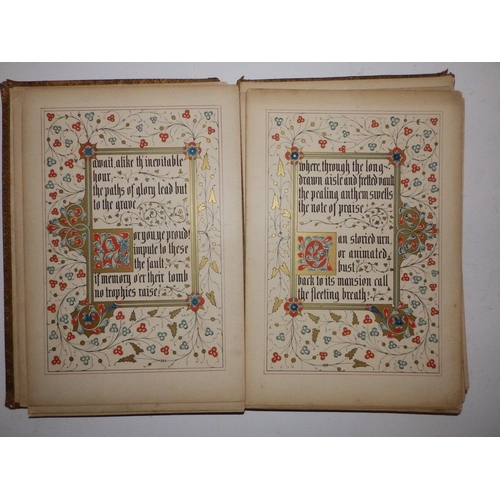 await alike th'inevitable
hour,
the paths of glory lead but
to the grave.
Nor you, ye proud!
impute to these
the fault,
if memory o'er their tomb
no trophies raise;
where, through the long-
drawn aisle and fretted vault
the pealing anthem swells
the note of praise.
Can storied urn,
or animated
bust,
back to its mansion call
the fleeting breath?